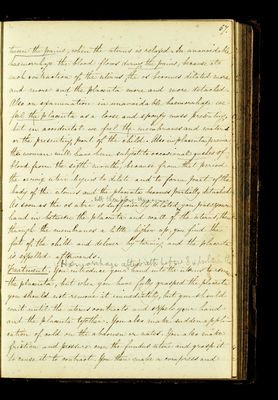 67
tween the pains, when the uterus is relaxed. In unavoidable
haemorrhage the blood flows during the pains, because at
each contraction of the uterus the os becomes dilated more
and more and the placenta more and more detached.
Also on examination in unavoidable haemorrhage we
feel the placenta as a loose and spongy mass presenting,
but in accidental we feel the membranes and waters
or the presenting part of the child. Also in placenta praevia
the woman will have been subject to occasional gushes of
blood from the sixth month, because from that period
the cervix uteri begins to dilate and to form part of the
body of the uterus and the placenta becomes partially detached
As soon as the os uteri is sufficiently dilated, you pass your
hand in between the placenta and wall of the uterus, then
through the membranes a little higher up, you find the
feet of the child and deliver by turning, and the placenta
is expelled afterwards.
Haemorrhage after birth before expulsion
Treatment. You introduce your hand into the uterus to
the placenta, but when you have fully grasped the placenta
you should not remove it immediately, but you should
wait until the uterus contracts and expels your hand
and the placenta together. You also make sudden appli-
cation of cold on the abdomen or nates. You also make
friction and pressure over the fundus uteri and grasp it
to cause it to contract. You then make a compress and